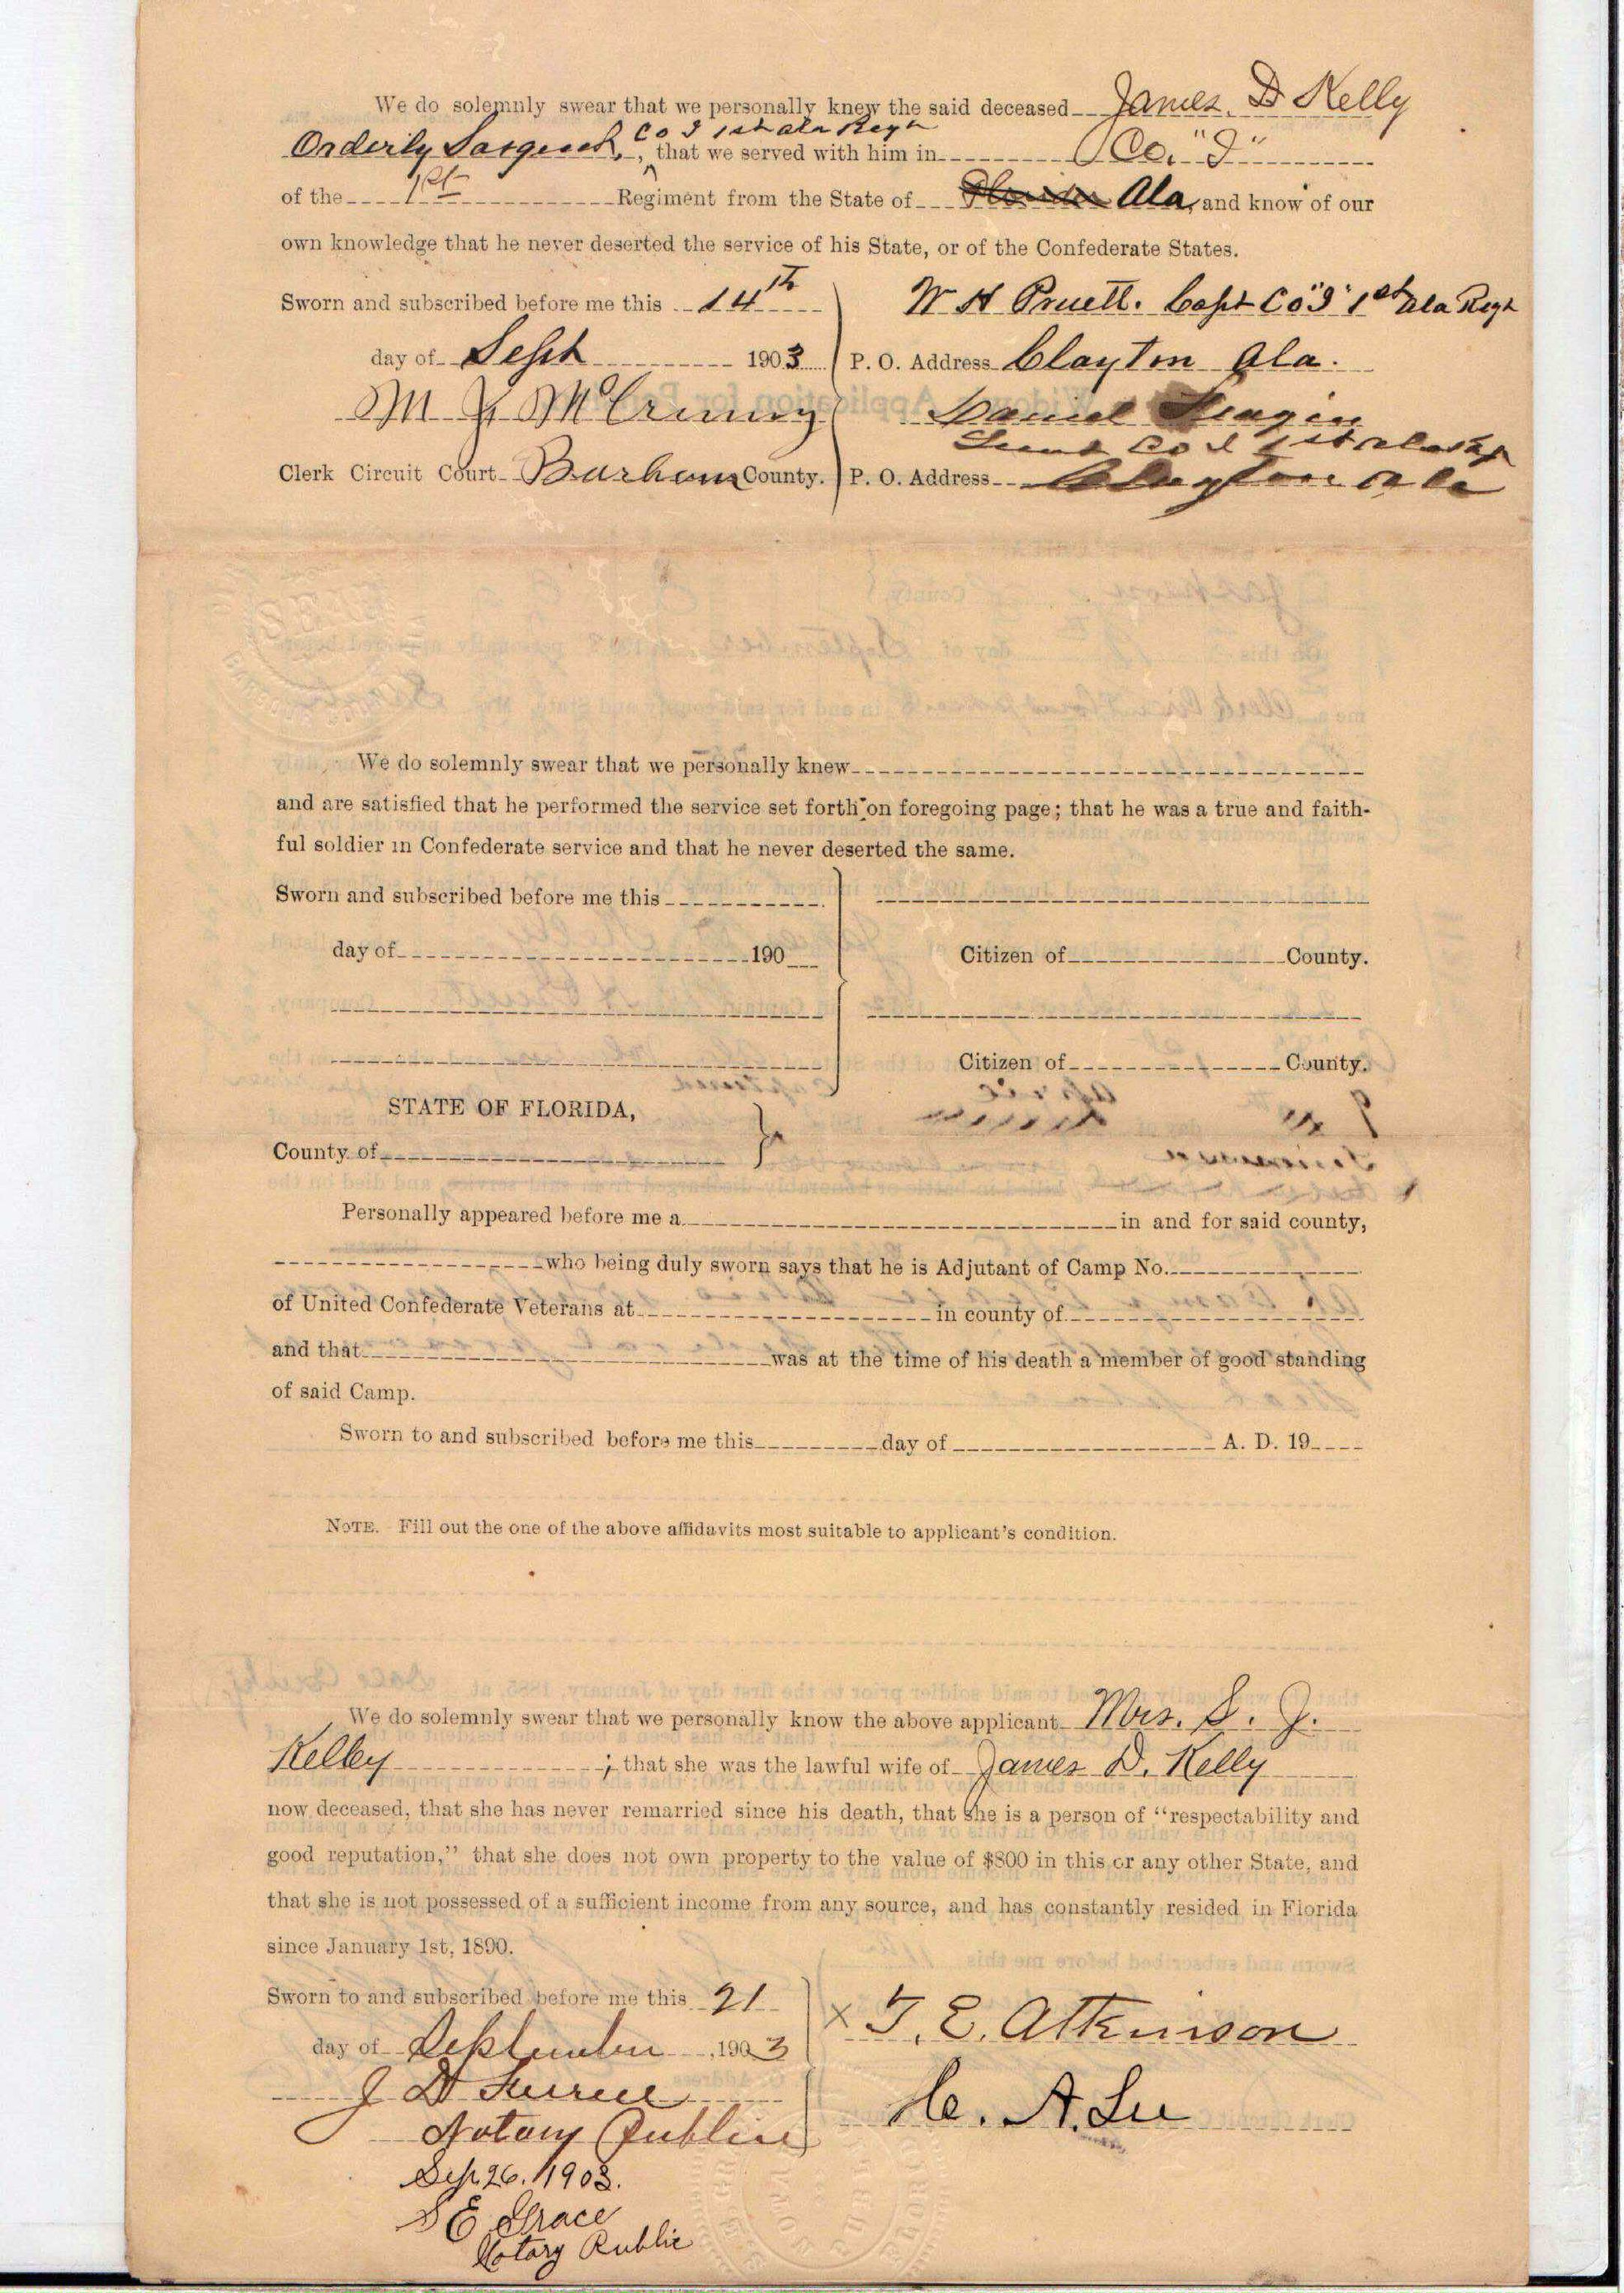 We do solemnly swear that we personally knew the said deceased James. D Kelly
Co I 1st ala Regt
Orderly Sargent, , that we served with him in Co. "I"
of the 1st Regiment from the State of Florida Ala, and know of our
own knowledge that he never deserted the service of his State, or of the Confederate States.
Sworn and subscribed before me this 14th
W H Pruett. Capt Co "I" 1st Ala Regt
day of Sept 1903
P. O. Address Clayton Ala.
M
Daniel
Co I 1st
Clerk Circuit Court Barbour County.
P. O. Address Clayton Ala
We do solemnly swear that we personally knew
and are satisfied that he performed the service set forth on foregoing page; that he was a true and faith-
ful soldier in Confederate service and that he never deserted the same.
Sworn and subscribed before me this
day of 190
Citizen of County.
Citizen of County.
STATE OF FLORIDA,
County of
Personally appeared before me a in and for said county,
who being duly sworn says that he is Adjutant of Camp No.
of United Confederate Veterans at in county of
and that was at the time of his death a member of good standing
of said Camp.
Sworn to and subscribed before me this day of A. D. 19
NOTE. Fill out the one of the above affidavits most suitable to applicant's condition.
We do solemnly swear that we personally know the above applicant Mrs. S. J.
Kelley ; that she was the lawful wife of James D. Kelly
now deceased, that she has never remarried since his death, that she is a person of "respectability and
good reputation," that she does not own property to the value of $800 in this or any other State, and
that she is not possessed of a sufficient income from any source, and has constantly resided in Florida
since January 1st, 1890.
Sworn to and subscribed before me this 21
x T. E. Atkinson
day of September , 1903
J D
H. A. Lee
Notary Public
Sep 26. 1903.
S E Grace
Notary Public